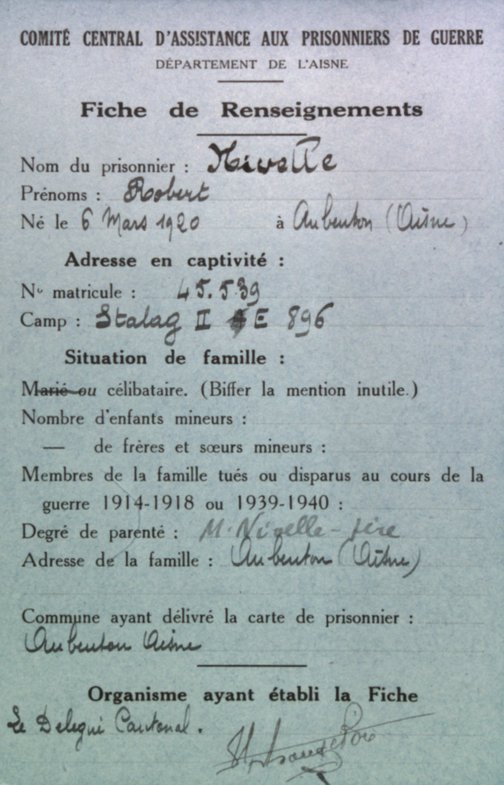 COMITÉ CENTRAL D'ASSISTANCE AUX PRISONNIERS DE GUERRE
DÉPARTEMENT DE L'AISNE
Fiche de Renseignements
Nom du prisonnier : Nivelle
Prénoms : Robert
Né le 6 Mars 1920 à Aubenton (Aisne)
Adresse en captivité :
No matricule : 45.539
Camp : Stalag II E 896
Situation de famille :
Marié ou célibataire. (Biffer la mention inutile.)
Nombre d'enfants mineurs :
— de frères et sœurs mineurs :
Membres de la famille tués ou disparus au cours de la
guerre 1914-1918 ou 1939-1940 :
Degré de parenté : M. Nivelle - père
Adresse de la famille : Aubenton (Aisne)
Commune ayant délivré la carte de prisonnier :
Aubenton Aisne
Organisme ayant établi la Fiche
Le Délégué Cantonal.